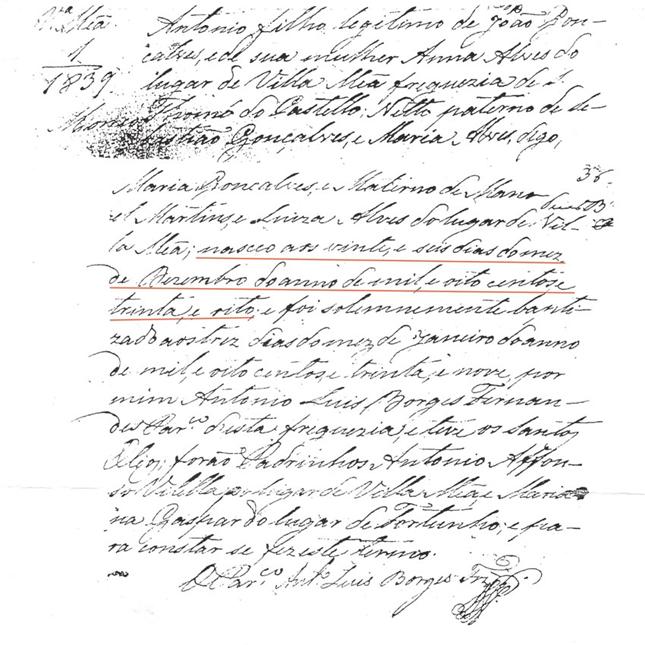 Vª Meã
1
1839
Antonio filho legitimo de João Gon-
calves, e de sua mulher Anna Alves do
lugar de Villa Meã freguezia de S.
Thomé do Castello: Netto paterno de Se-
bastião Gonçalves, e Maria Alves, digo,
36
Maria Goncalves, e Materno de Mano-
el Martins, e Luiza Alves do lugar de Vil-
la Meã; nasceo aos vinte, e seis dias do mez
de Dezembro do anno de mil, e oito centos, e
trinta, e oito: e foi solemnemente bauti-
zado aos trez dias do mez de Janeiro do anno
de mil, e oito centos, e trinta, e nove, por
mim Antonio Luis Borges Fernan-
des Par.co desta freguezia, e teve os santos
Oleos; forão Padrinhos Antonio Affon-
so Vilella do lugar de Villa Meã, e Maria-
na Gaspar do lugar de Fortunho; e pa-
ra constar se fez este termo.
O Par.co Ant.o Luis Borges Frz